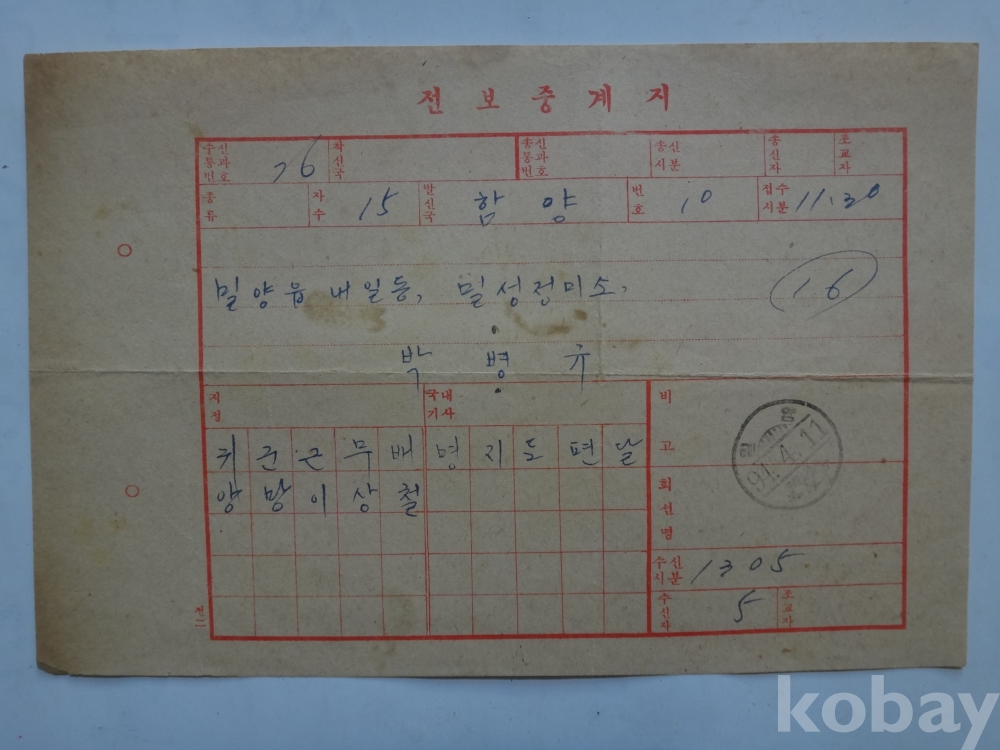 전보중계지
수신 통과 번호 76 착신국 송신 통과 번호 송신 시분 송신자 조교자
종류 자수 15 발신국 함양 번호 10 접수 시분 11.30
밀양읍 내일동, 밀성정미소.
16
박병규
지정 국내 기사 비고
귀군근무배명지도편달
양망이상철
91.4.11
회선명
수신 시분 1305
수신자 5 조교자
전 二
kobay